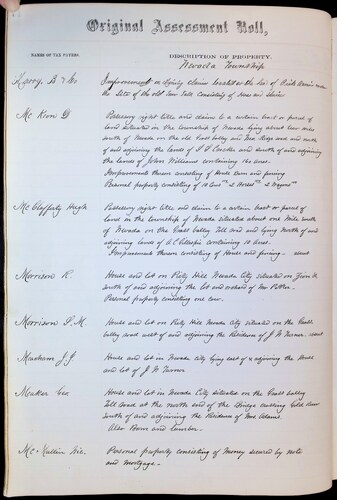 Original Assessment Roll,
NAMES OF TAX PAYERS.
DESCRIPTION OF PROPERTY.
Nevada Township
Improvement on claims located at the
the Site of the old consisting of Hose and
Mc Keon D
Possessory right title and claim to a certain tract or parcel of
land situated in the township of Nevada lying about two miles
south of Nevada on the old Grass Valley and Ridge and and north
of and adjoining the lands of and south of and adjoining
the lands of John Williams containing 160 acres.
Improvements thereon consisting of House Barn and fencing
Personal property consisting of 10 Cows 2 Horses 2 Wagons
Hugh
Possessory right title and claim to a certain tract or parcel of
land in the township of Nevada situated about one mile south
of Nevada on the Grass Valley Toll road and lying North of and
adjoining lands of containing 10 acres.
Improvements thereon consisting of House and fencing.
Morrison R.
House and lot on Piety Hill Nevada City situated on
south of and adjoining the lot and orchard of Mr Potter.
Personal property consisting one Cow.
Morrison M.
House and lot on Piety Hill Nevada City situated on the Grass
Valley road west of and adjoining the Residence of J. W. Turner.
J. J.
House and lot in Nevada City lying east of & adjoining the House
and lot of J. W. Turner
Meeker Geo.
House and lot in Nevada City situated on the Grass Valley
Toll road at the north end of the Bridge
south of and adjoining the Residence of Mrs Adams.
Also Barn and lumber.
Personal property consisting of Money secured by note
and Mortgage.